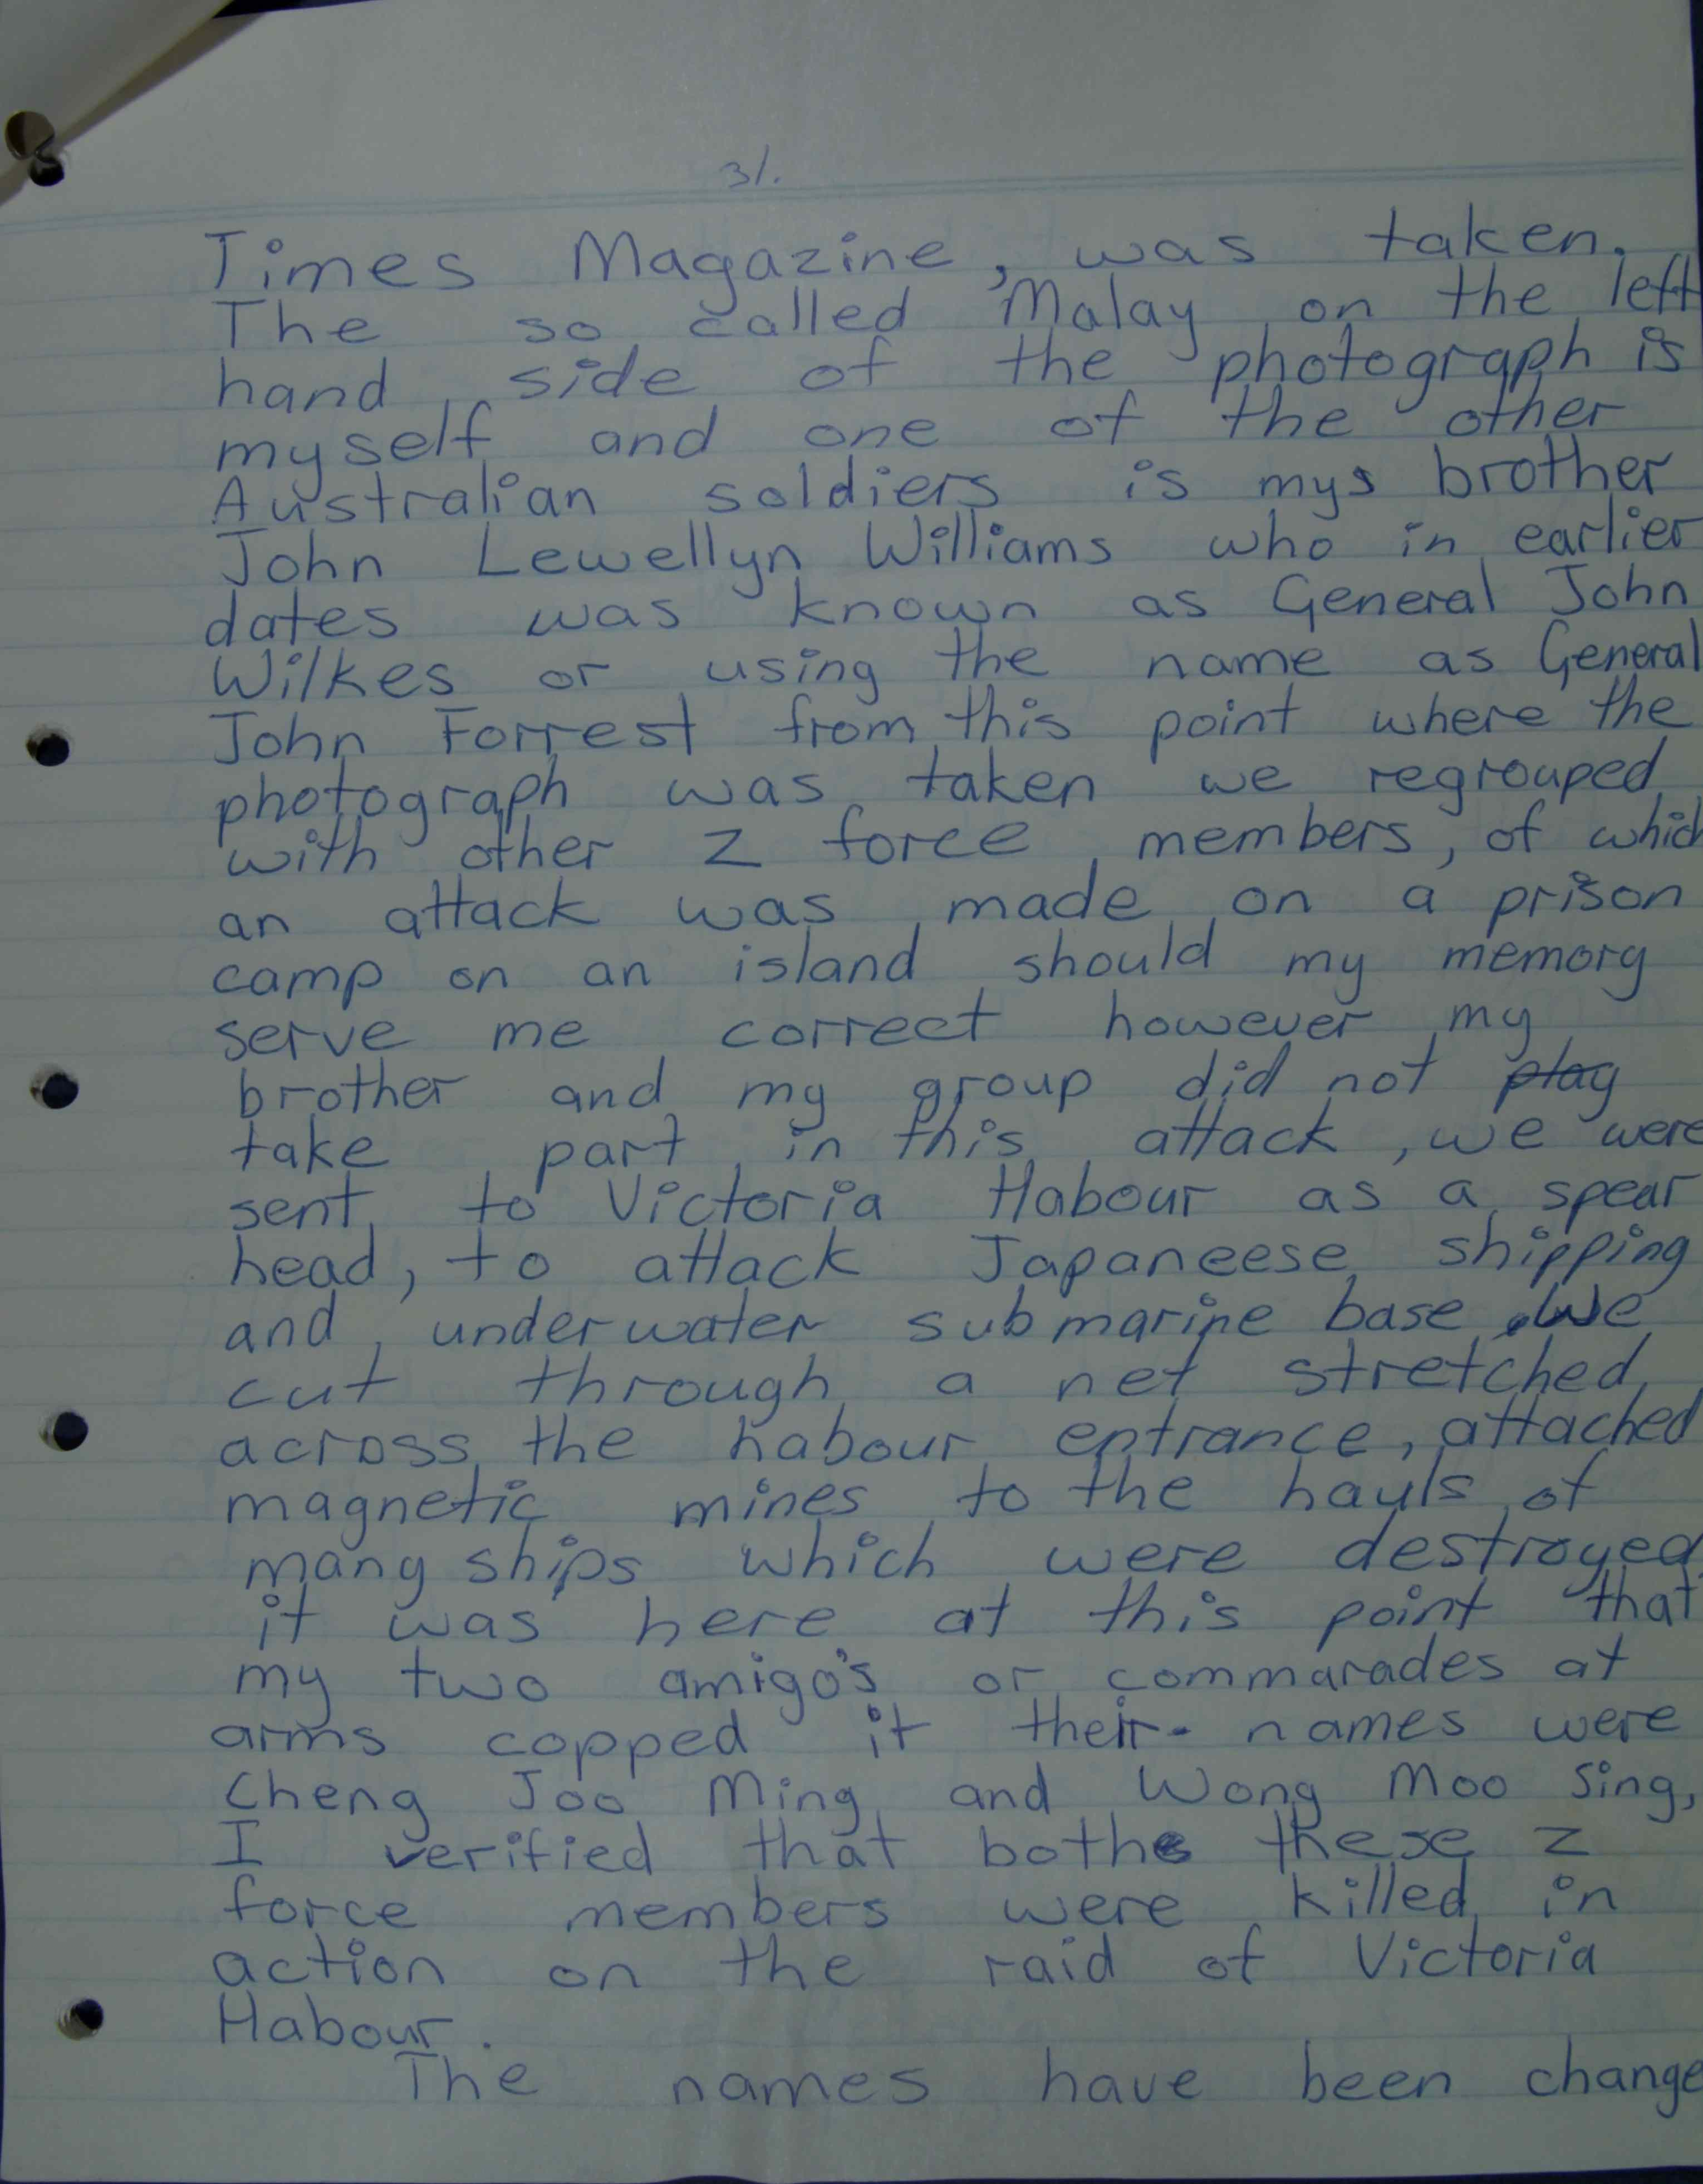 31.
Times Magazine, was taken.
The so called 'Malay on the left
hand side of the photograph is
myself and one of the other
Australian soldiers is mys brother
John Lewellyn Williams who in earlier
dates was known as General John
Wilkes or using the name as General
John Forrest from this point where the
photograph was taken we regrouped
with other Z force members, of which
an attack was made on a prison
camp on an island should my memory
serve me correct however my
brother and my group did not play
take part in this attack, we were
sent to Victoria Habour as a spear
head, to attack Japaneese shipping
and underwater submarine base. We
cut through a net stretched
across the habour entrance, attached
magnetic mines to the hauls of
many ships which were destroyed
it was here at this point that
my two amigo's or commarades at
arms copped it their names were
Cheng Joo Ming and Wong Moo Sing,
I verified that both these Z
force members were killed in
action on the raid of Victoria
Habour.
The names have been change